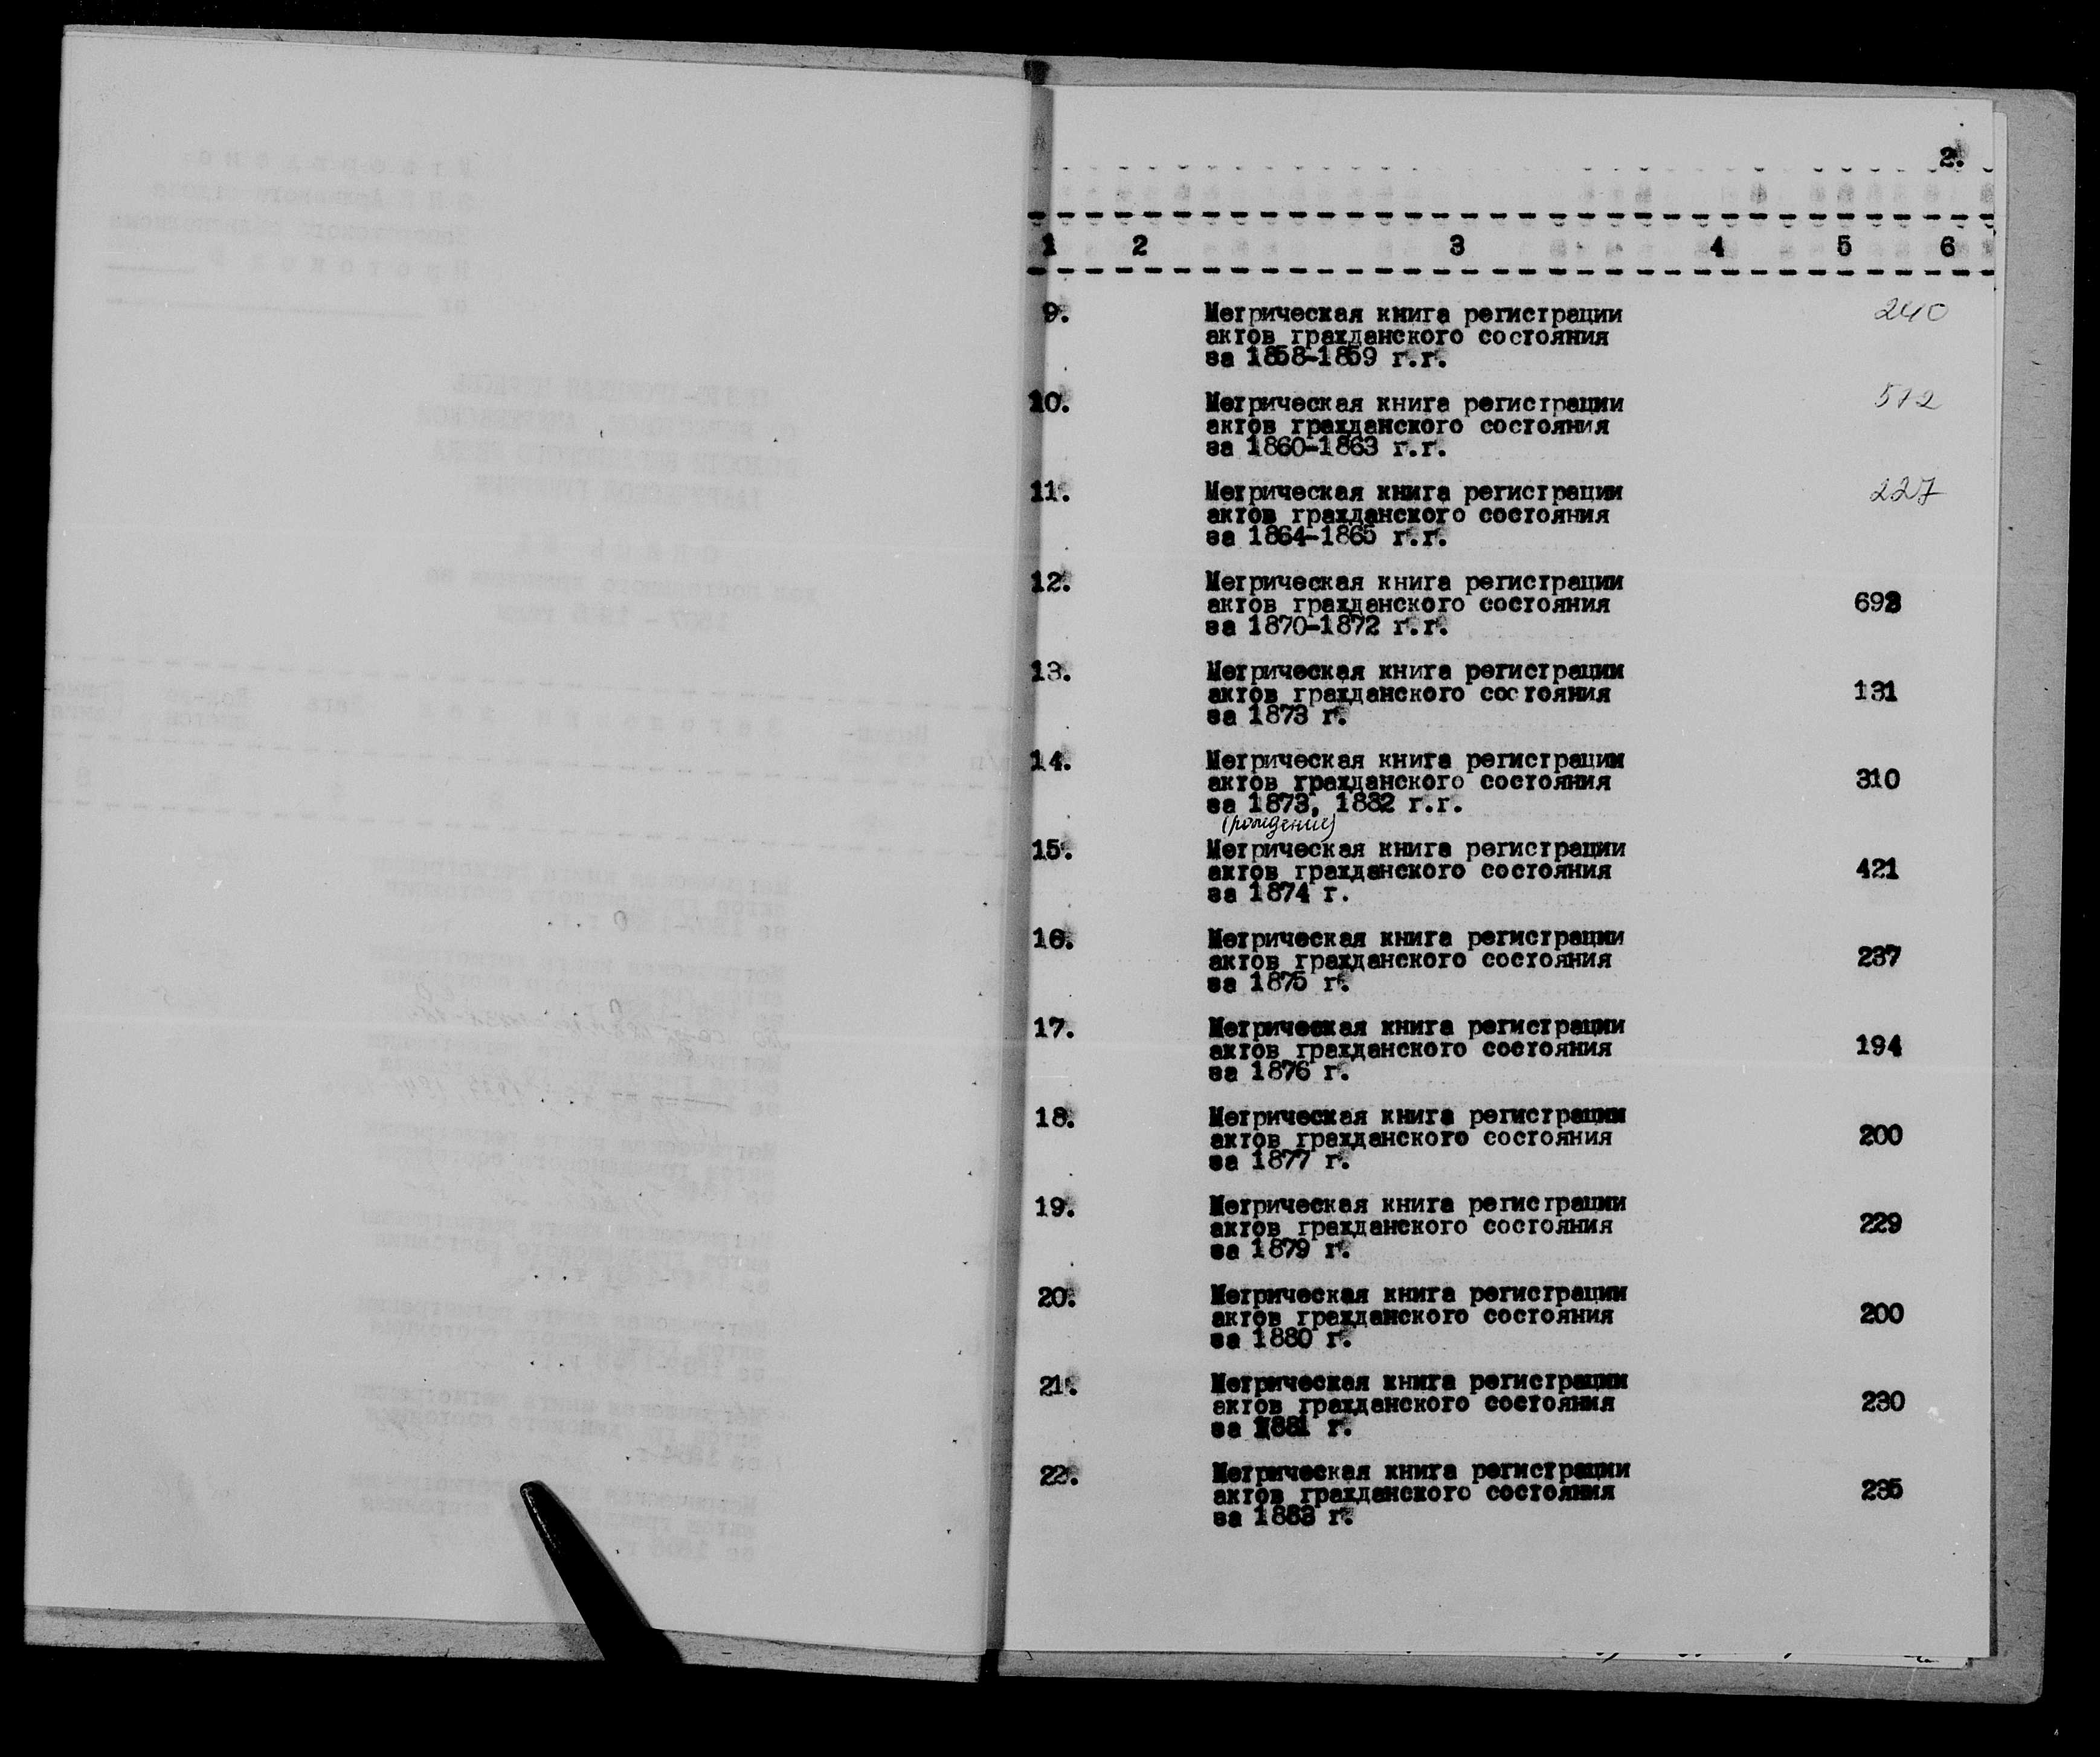 2.
1 2 3 4 5 6
9. Метрическая книга регистрации 240
актов гражданского состояния
за 1858-1859 г.г.
10. Метрическая книга регистрации 512
актов гражданского состояния
за 1860-1863 г.г.
11. Метрическая книга регистрации 227
актов гражданского состояния
за 1864-1865 г.г.
12. Метрическая книга регистрации
актов гражданского состояния 698
за 1870-1872 г.г.
13. Метрическая книга регистрации
актов гражданского состояния 131
за 1873 г.
14. Метрическая книга регистрации
актов гражданского состояния 310
за 1873, 1882 г.г.
(рождение)
15. Метрическая книга регистрации
актов гражданского состояния 421
за 1874 г.
16. Метрическая книга регистрации
актов гражданского состояния 237
за 1875 г.
17. Метрическая книга регистрации
актов гражданского состояния 194
за 1876 г.
18. Метрическая книга регистрации
актов гражданского состояния 200
за 1877 г.
19. Метрическая книга регистрации
актов гражданского состояния 229
за 1879 г.
20. Метрическая книга регистрации
актов гражданского состояния 200
за 1880 г.
21. Метрическая книга регистрации
актов гражданского состояния 230
за 1881 г.
22. Метрическая книга регистрации
актов гражданского состояния 235
за 1883 г.